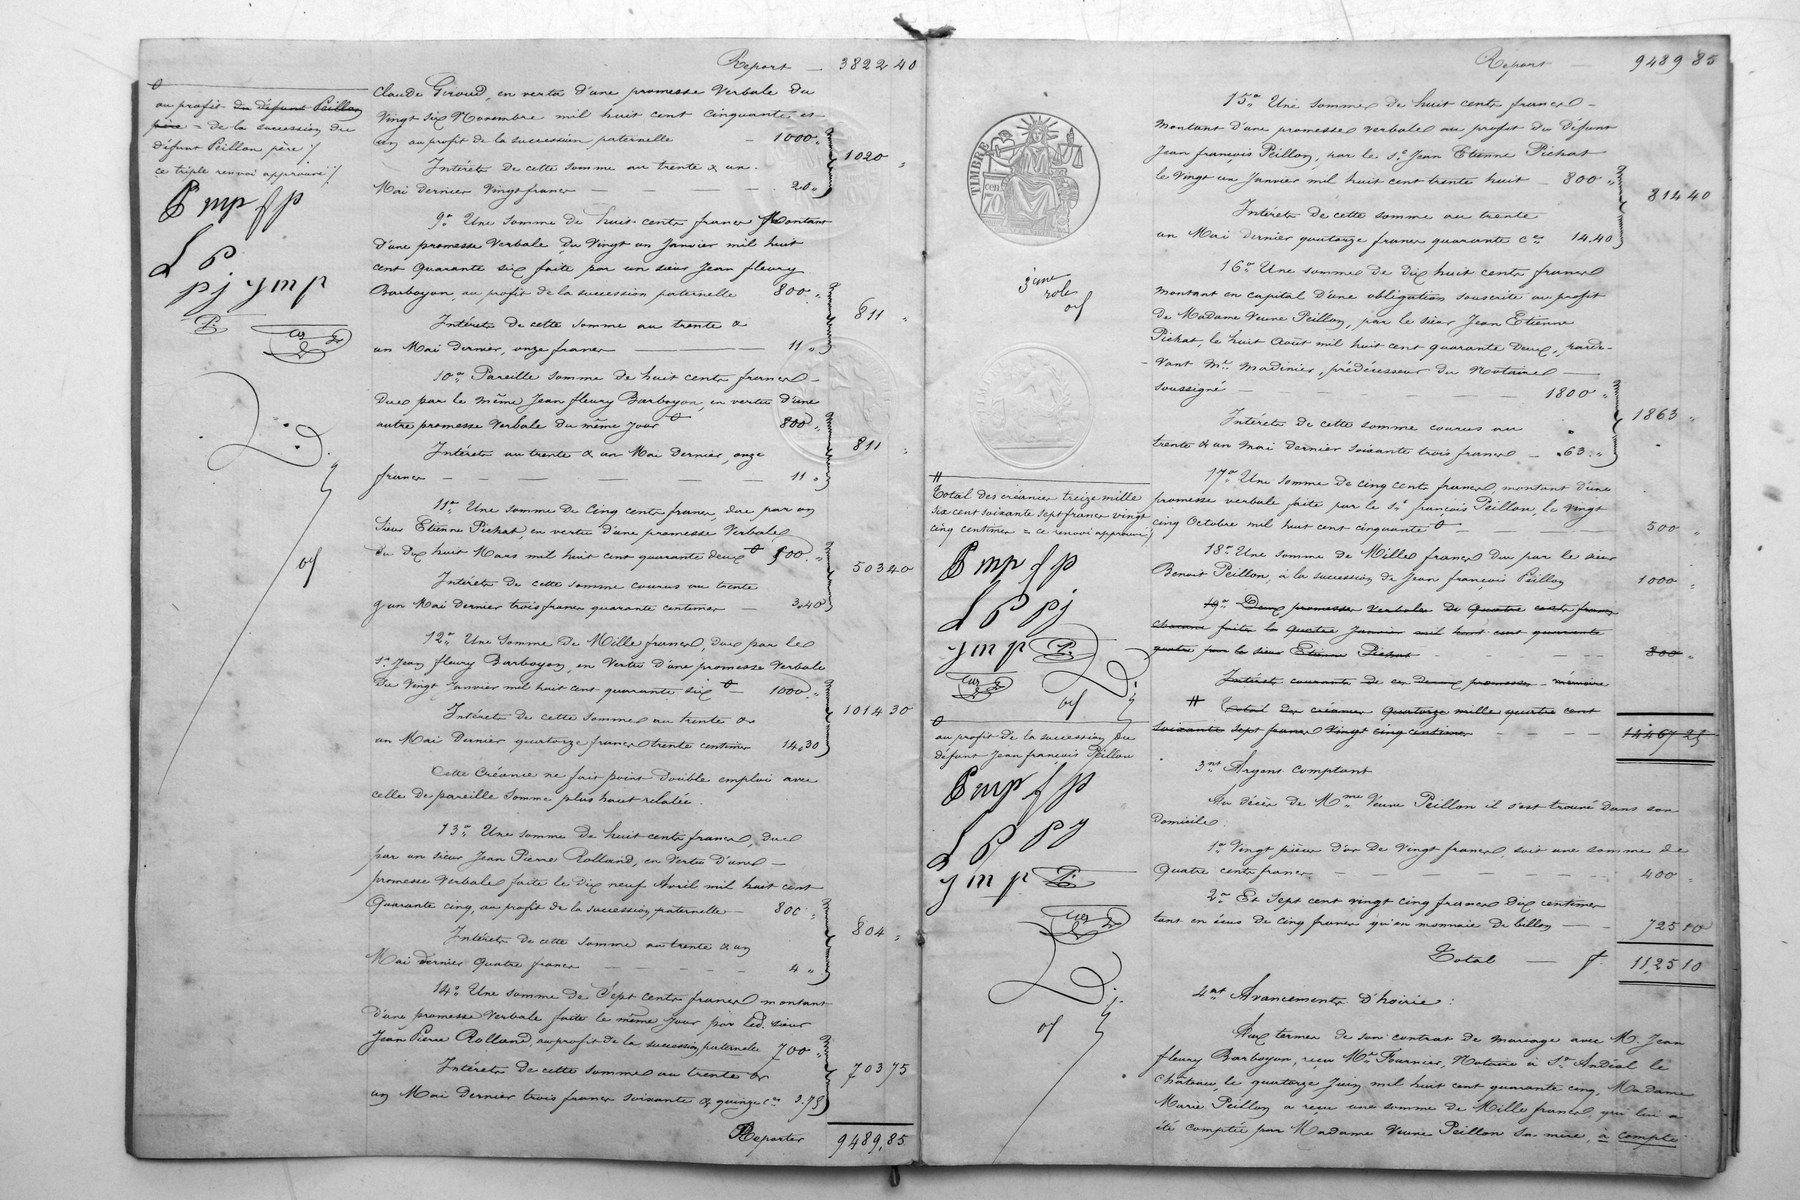 Report — 3822 40
au profit du défunt Peillon
père = de la succession du
défunt Peillon père /
ce triple renvoi approuvé /
Claude Giroud, en vertu d'une promesse Verbale du
Vingt six Novembre mil huit cent cinquante et
un au profit de la succession paternelle — 1000 "
1020 "
Intérêts de cette somme au trente & un
Mai dernier Vingt francs — — — — 20 "
9° Une somme de huit cents francs Montant
d'une promesse Verbale du Vingt un Janvier mil huit
cent Quarante six faite par un sieur Jean fleury
Barboyon, au profit de la succession paternelle 800 "
811 "
Intérêts de cette somme au trente &
un Mai dernier, onze francs — 11 "
10° Pareille somme de huit cents francs —
Due par le même Jean fleury Barboyon, en vertu d'une
autre promesse Verbale du même jour 800 "
811 "
Intérêts au trente & un Mai Dernier, onze
francs — — — — — — 11 "
11° Une somme de Cinq cents francs, due par un
Sieur Etienne Pichat, en vertu d'une promesse Verbale
du Dix huit Mars mil huit cent quarante deux 500 "
503 40
Intérêts de cette somme courus au trente
& un Mai Dernier trois francs quarante centimes — 3.40
12° Une Somme de Mille francs, due par le
Sr Jean fleury Barboyon, en Vertu d'une promesse Verbale
du Vingt Janvier mil huit cent quarante six — 1000 "
1014 30
Intérêts de cette somme au trente &
un Mai Dernier quatorze francs trente centimes 14.30
Cette Créance ne fait point double emploi avec
celle de pareille somme plus haut relatée.
13° Une somme de huit cents francs, due
par un sieur Jean Pierre Rolland, en Vertu d'une —
promesse Verbale faite le Dix neuf Avril mil huit cent
Quarante cinq, au profit de la succession paternelle — 800 "
804 "
Intérêts de cette somme au trente & un
Mai dernier Quatre francs — — — — 4 "
14° Une somme de Sept cents francs montant
d'une promesse Verbale faite le même jour par led. sieur
Jean Pierre Rolland, au profit de la succession paternelle 700 "
703 75
Intérêts de cette somme au trente &
un Mai Dernier trois francs soixante & quinze ces 3.75
Reporter 9489.85
Report — 9489 85
TIMBRE
cen
70
3ème
role
15° Une somme de huit cents francs —
montant d'une promesse verbale au profit du défunt
Jean françois Peillon, par le sr Jean Etienne Pichat
le Vingt un Janvier mil huit cent trente huit — 800 "
814 40
Intérêts de cette somme au trente
un Mai dernier quatorze francs quarante ces 14.40
16° Une somme de Dix huit cents francs
montant en capital d'une obligation souscrite au profit
de Madame Veuve Peillon, par le sieur Jean Etienne
Pichat, le huit Aout mil huit cent quarante Deux, parde-
-vant Me Madinier, prédécesseur du Notaire —
soussigné — — — — — — 1800 "
1863 "
Intérêts de cette somme courus au
trente & un mai dernier soixante trois francs — 63 "
17° Une somme de cinq cents francs, montant d'une
promesse verbale faite par le sr françois Peillon, le vingt
cinq Octobre mil huit cent cinquante — 500 "
18° Une somme de Mille francs due par le sieur
Benoit Peillon, à la succession de Jean françois Peillon 1000 "
19° Deux promesses verbales de Quatre cents francs
chacune faites le Quatre Janvier mil huit cent quarante
quatre par le sieur Etienne Pichat — — — 800 "
Intérêts courants de ces deux promesses — mémoire
# Total des créances Quatorze mille quatre cent
soixante sept francs Vingt cinq centimes — — — 14467 25
#
Total des créances treize mille
six cent soixante sept francs vingt
cinq centimes = ce renvoi approuvé /
au profit de la succession du
défunt Jean françois Peillon
3nt Argent comptant
Au décès de Mme Veuve Peillon il s'est trouvé dans son
Domicile :
1° Vingt pièces d'or de Vingt francs, soit une somme de
Quatre cents francs — — — — — — 400 "
2° Et Sept cent vingt cinq francs dix centimes
tant en écus de cinq francs qu'en monnaie de billon — — 725 10
Total — f. 1125 10
4ent Avancements d'hoirie :
Aux termes de son contrat de mariage avec M. Jean
fleury Barboyon, reçu Me Fournier, Notaire à St Andéol le
château, le quatorze Juin mil huit cent quarante cinq, Madame
Marie Peillon a reçu une somme de Mille francs, qui lui a
été comptée par Madame Veuve Peillon sa mère, à compte